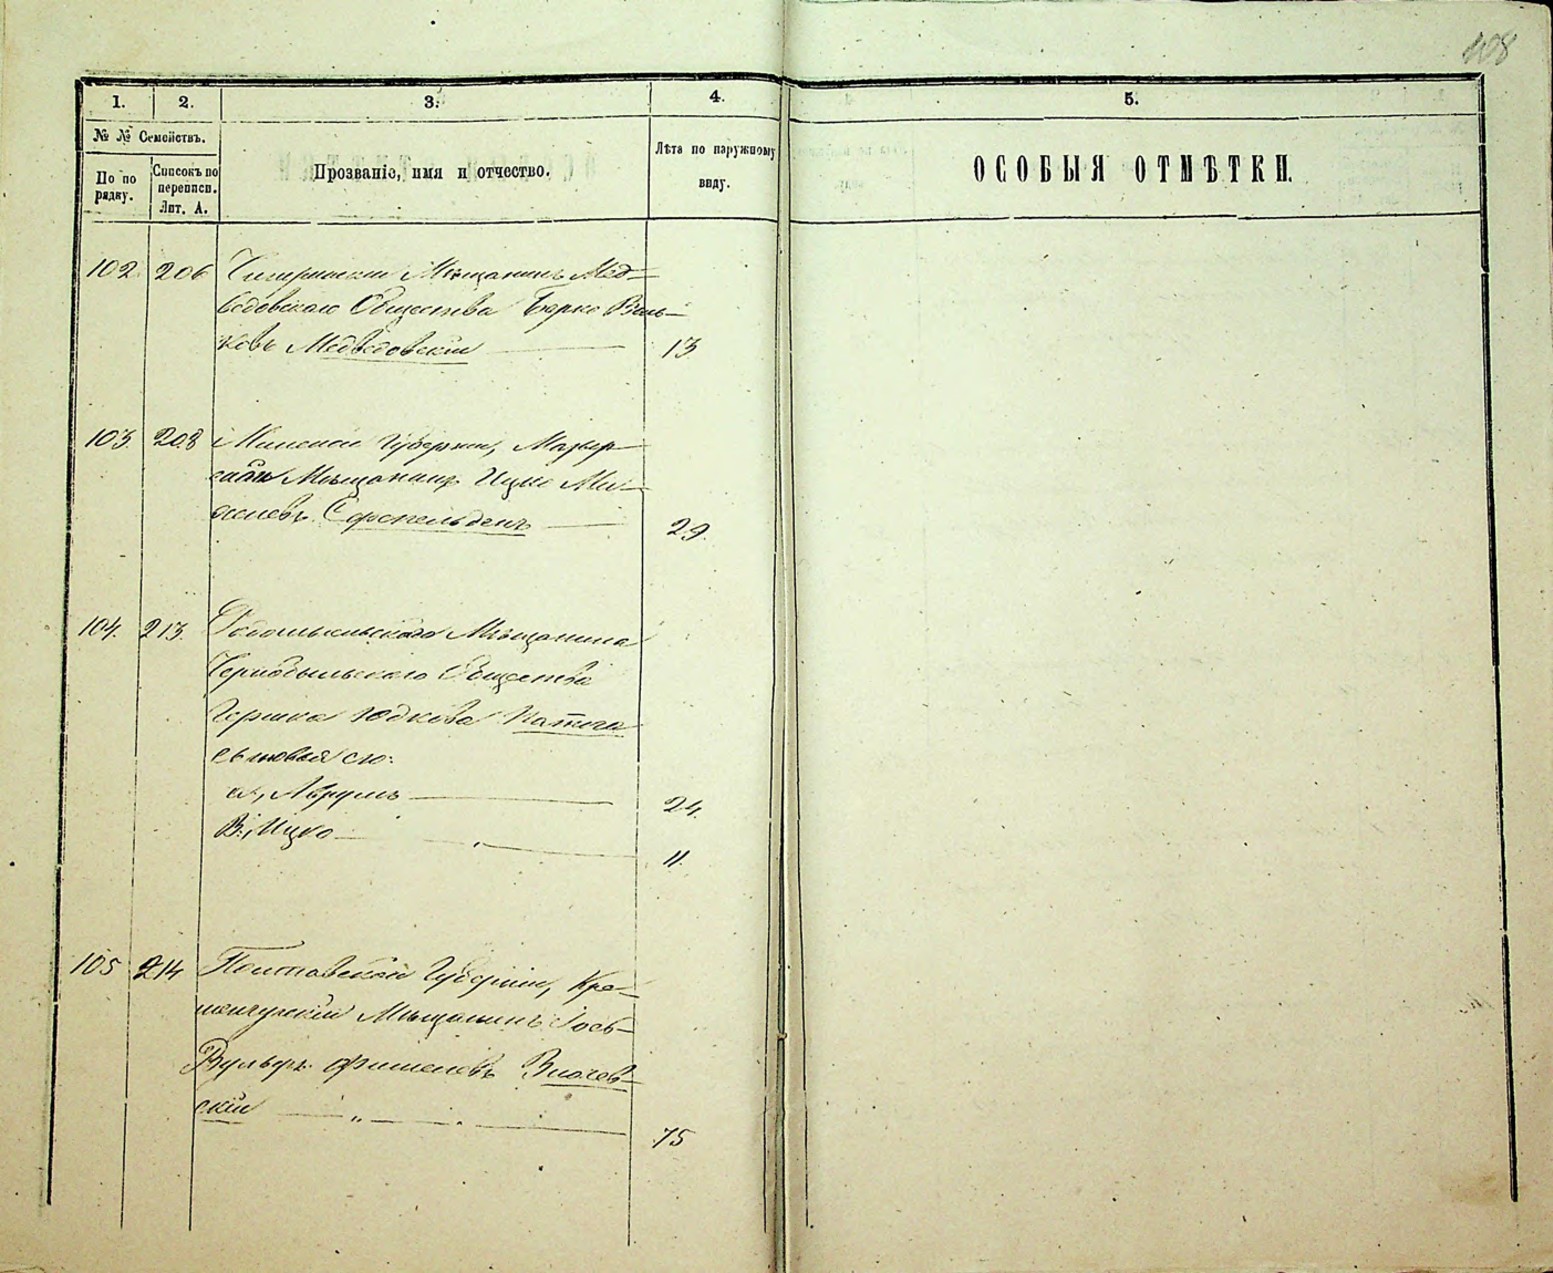 108
1. 2. 3. 4. 5.
№ № Семействъ.
По по рядку.
Списокъ по переписи. Лит. А.
Прозваніе, имя и отчество.
Лѣта по наружному виду.
ОСОБЫЯ ОТМѢТКИ.
102. 206 Чигиринскій Мѣщанинъ Мед-
ведовскаго Общества Берко Воль-
ковъ Медведовскій 13
103. 208 Минской Губерніи, Мозыр-
скій Мѣщанинъ Ицко
29.
104. 213. Радомысльскаго Мѣщанина
Чернобыльскаго Общества
Гершка Юдкова
сыновья его:
а, Аврумъ 24.
В., Ицко 11.
105 214 Полтавской Губерніи, Кре-
менчугскій Мѣщанинъ Іось-
Вульфъ Фишелевъ
скій 75